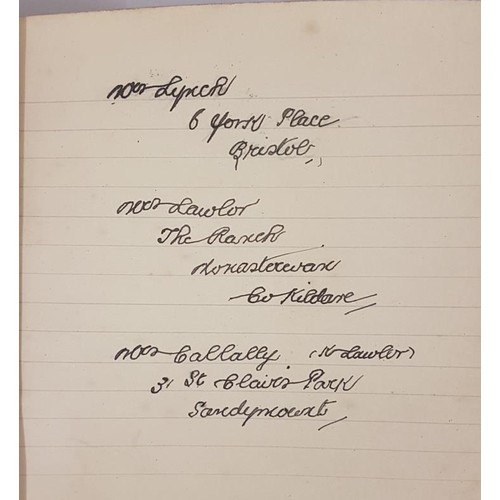 Mrs Lynch
6 York Place.
Bristol,,
Mrs Lawlor.
The Ranch
Monasterevan
Co Kildare
Mrs Callally. (K Lawlor)
31 St Clair's Park
Sandymount